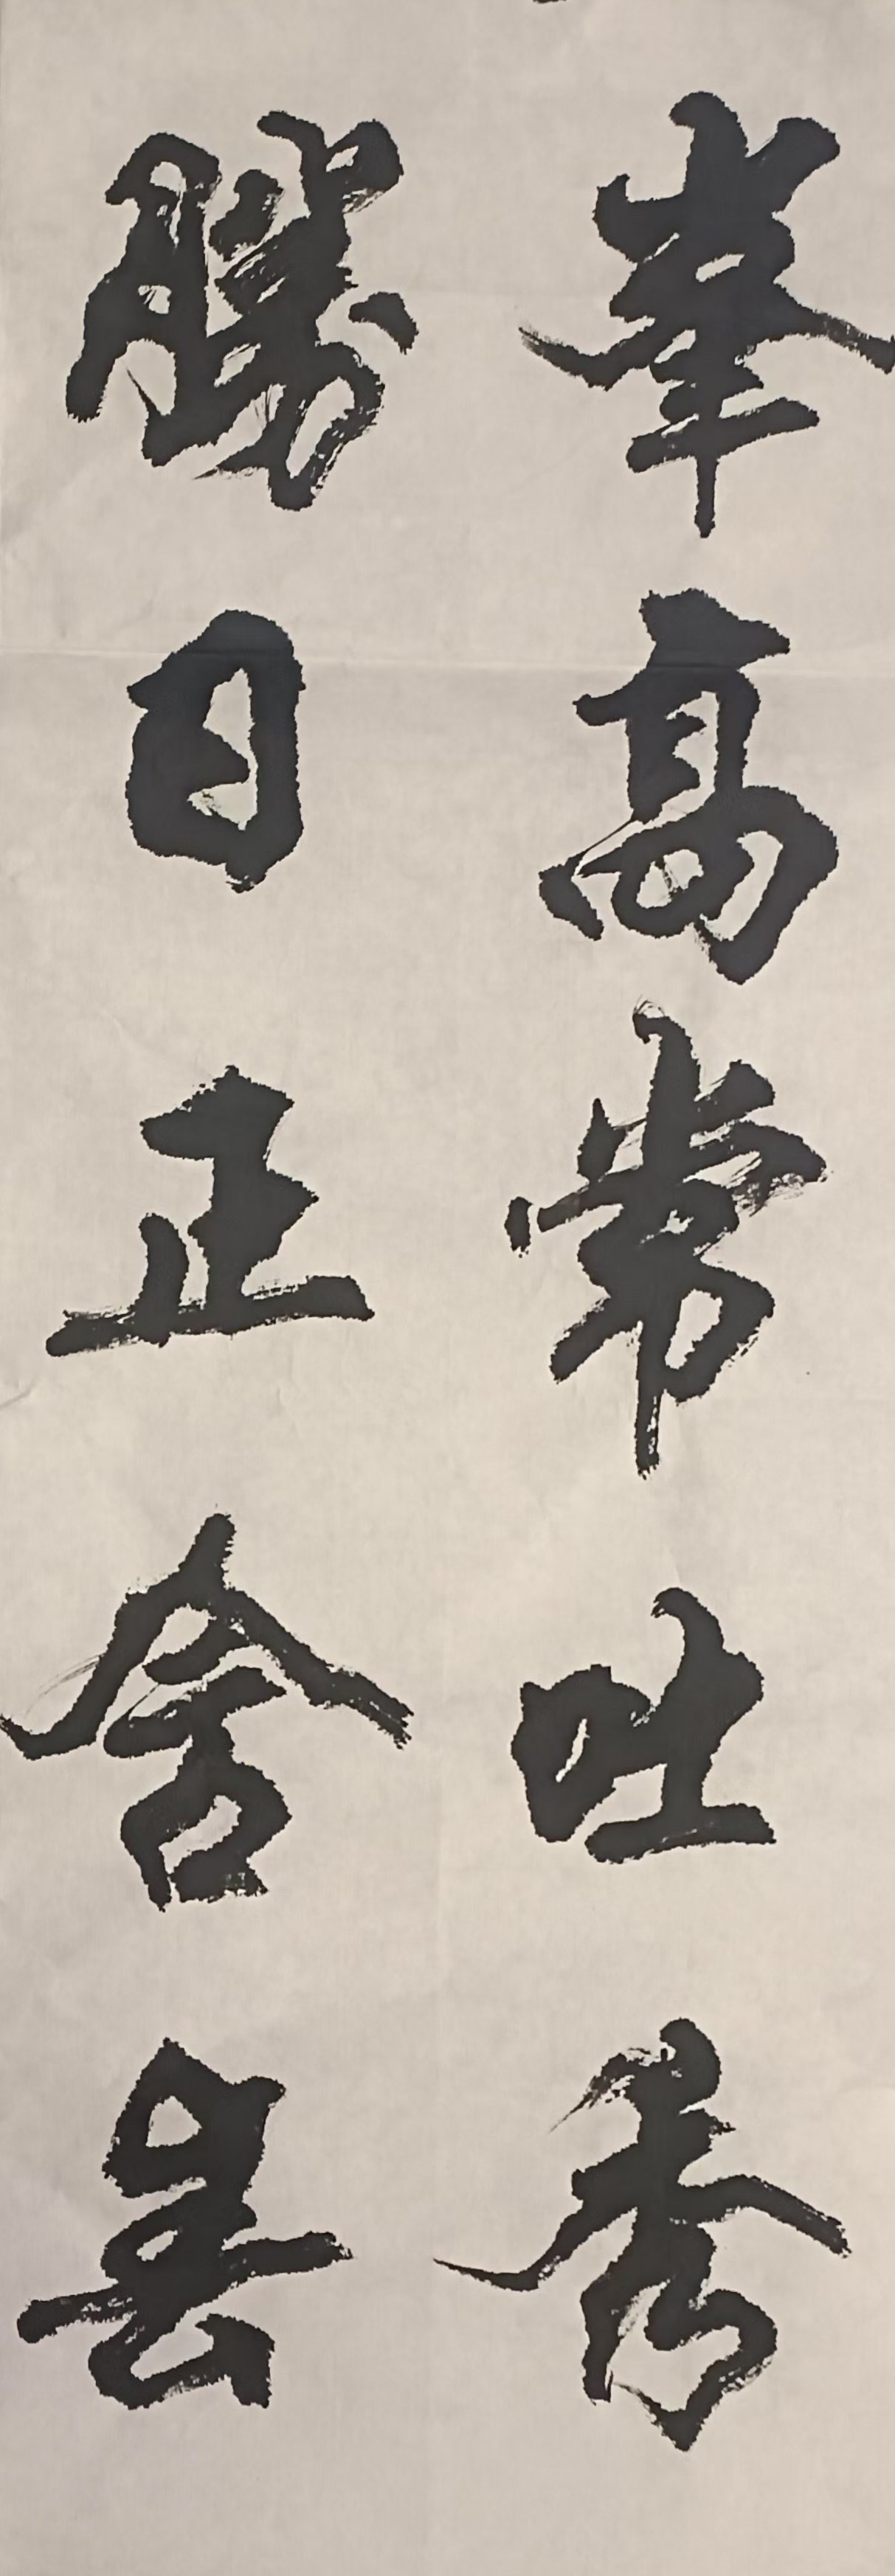 峯高常吐秀
勝日正含